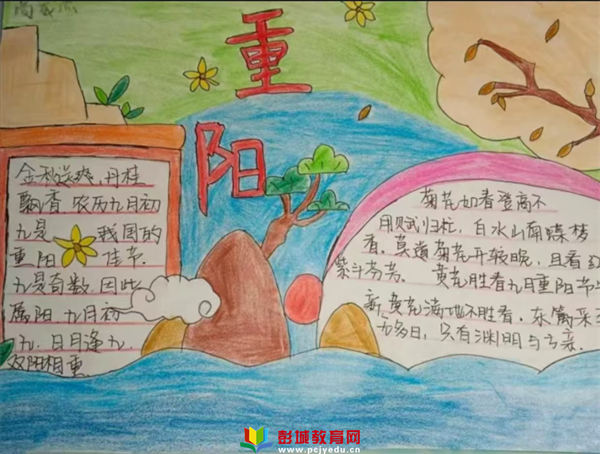 重
阳
金秋送爽，丹桂
飘香，农历九月初
九是 我国的
重阳 佳节。
九是奇数，因此
属阳，九月初
九，日月逢九，
双阳相重
菊花如春登高不
用赋归忙，白水山南
看，莫道菊花开较晚，且看
紫斗芳芳。 黄花胜看九月重阳节
新，黄花满地不胜看，东篱采
九多日，只有渊明与
彭城教育网
www.pcjyedu.com